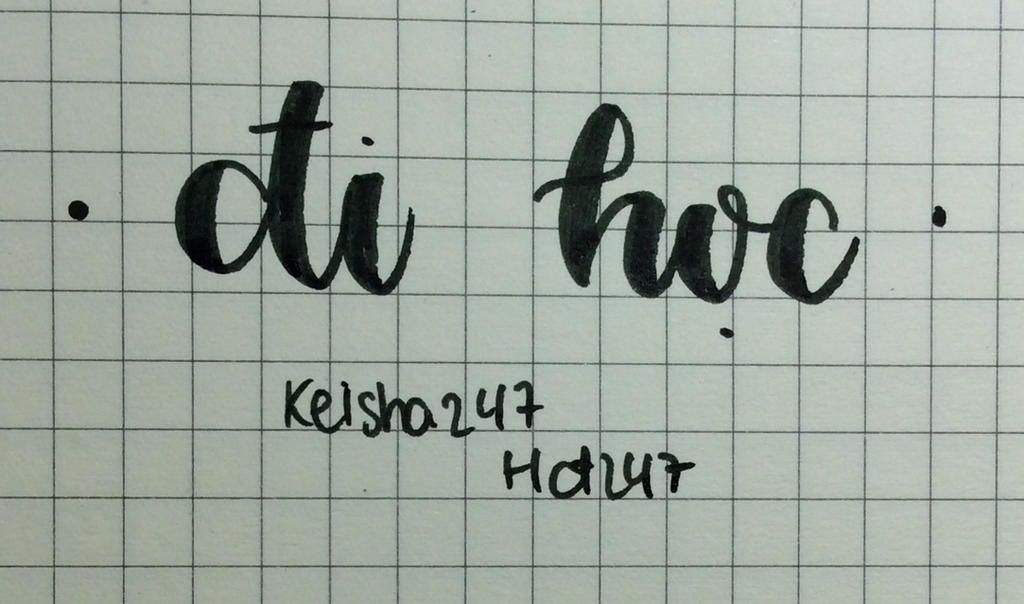 • đi học •
Keisha247
Hd247